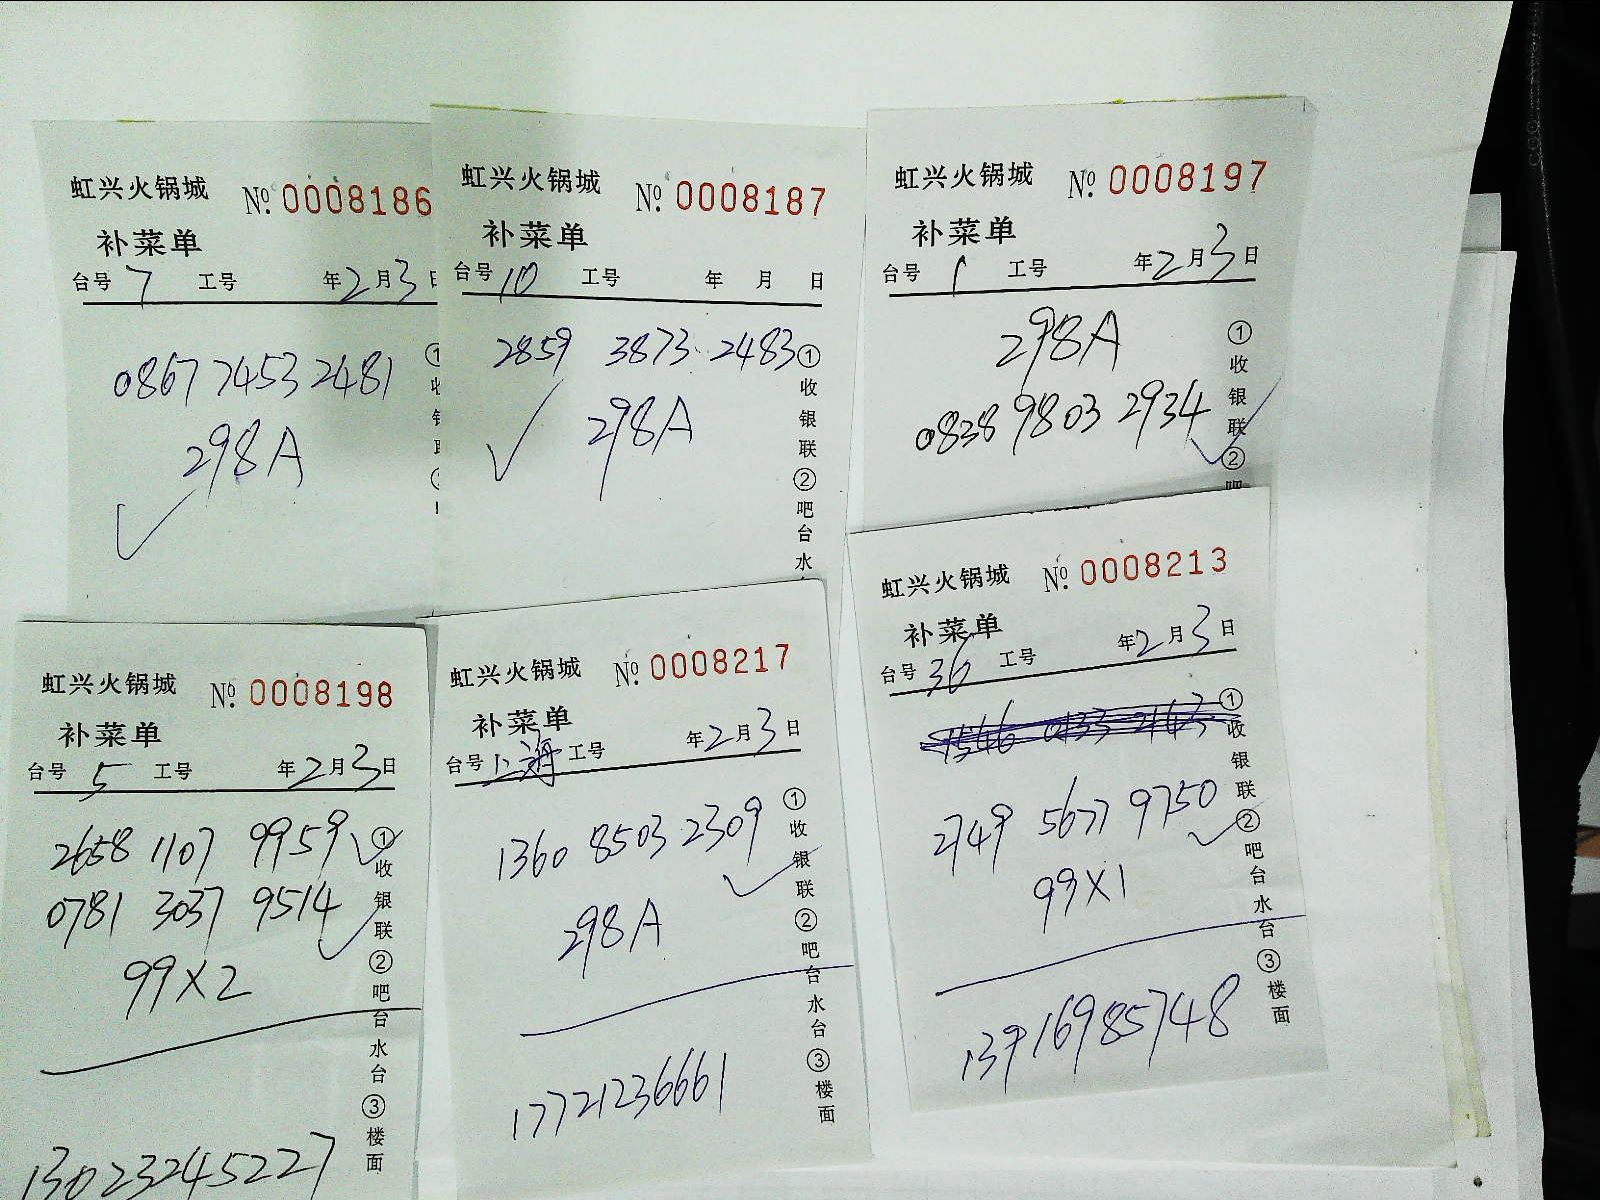 虹兴火锅城 № 0008186
补菜单
台号 7 工号 年 2 月 3 日
0867 7453 2481
298A
虹兴火锅城 № 0008187
补菜单
台号 10 工号 年 月 日
2859 3873 2483
298A
①收银联②吧台水
虹兴火锅城 № 0008197
补菜单
台号 1 工号 年 2 月 3 日
298A
0838 9803 2934
①收银联②吧
虹兴火锅城 № 0008198
补菜单
台号 5 工号 年 2 月 3 日
2658 1107 9959
0781 3037 9514
99X2
13023245227
①收银联②吧台水台③楼面
虹兴火锅城 № 0008217
补菜单
台号 上海 工号 年 2 月 3 日
1360 8503 2309
298A
17721236661
①收银联②吧台水台③楼面
虹兴火锅城 № 0008213
补菜单
台号 36 工号 年 2 月 3 日
2749 5677 9750
99X1
13916985748
①收银联②吧台水台③楼面